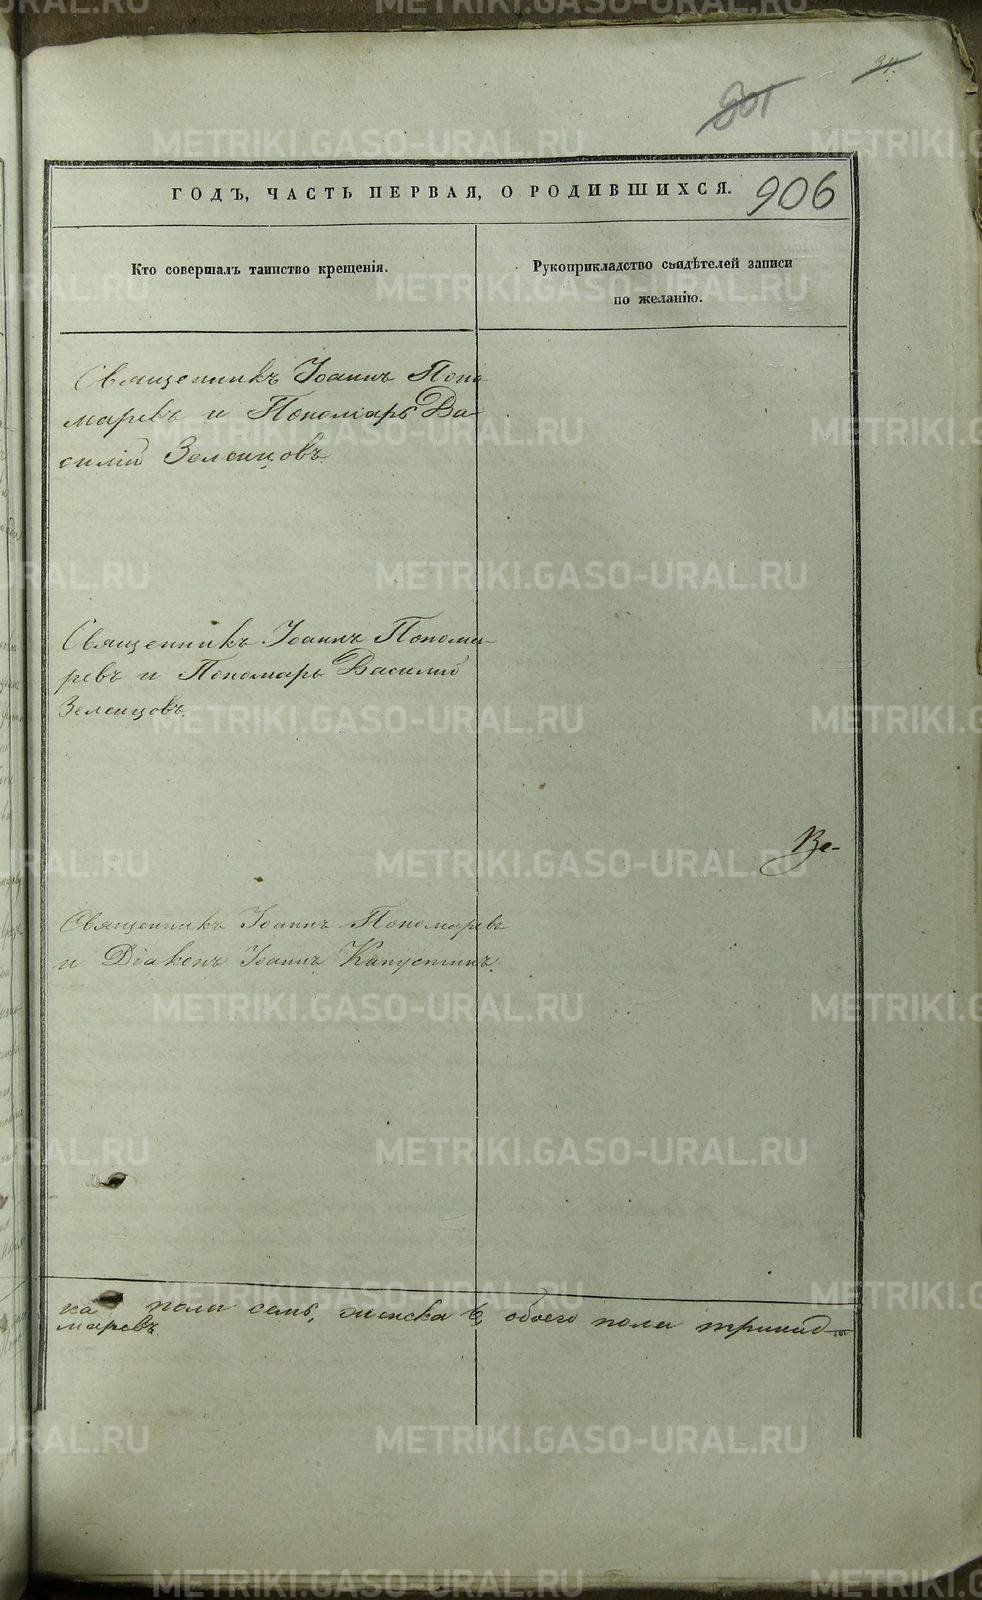 34.
801
ГОДЪ, ЧАСТЬ ПЕРВАЯ, О РОДИВШИХСЯ.
906
Кто совершалъ таинство крещенія.
Рукоприкладство свидѣтелей записи
по желанію.
Священникъ Іоаннъ Поно-
маревъ и Пономарь Ва-
силій Зеленцовъ
Священникъ Іоаннъ Понома-
ревъ и Пономарь Василій
Зеленцовъ.
Ве-
Священникъ Іоаннъ Пономаревъ
и Діаконъ Іоаннъ Капустинъ.
ка пола семь, женска 6, обоего пола тринад-
маревъ.
METRIKI.GASO-URAL.RU